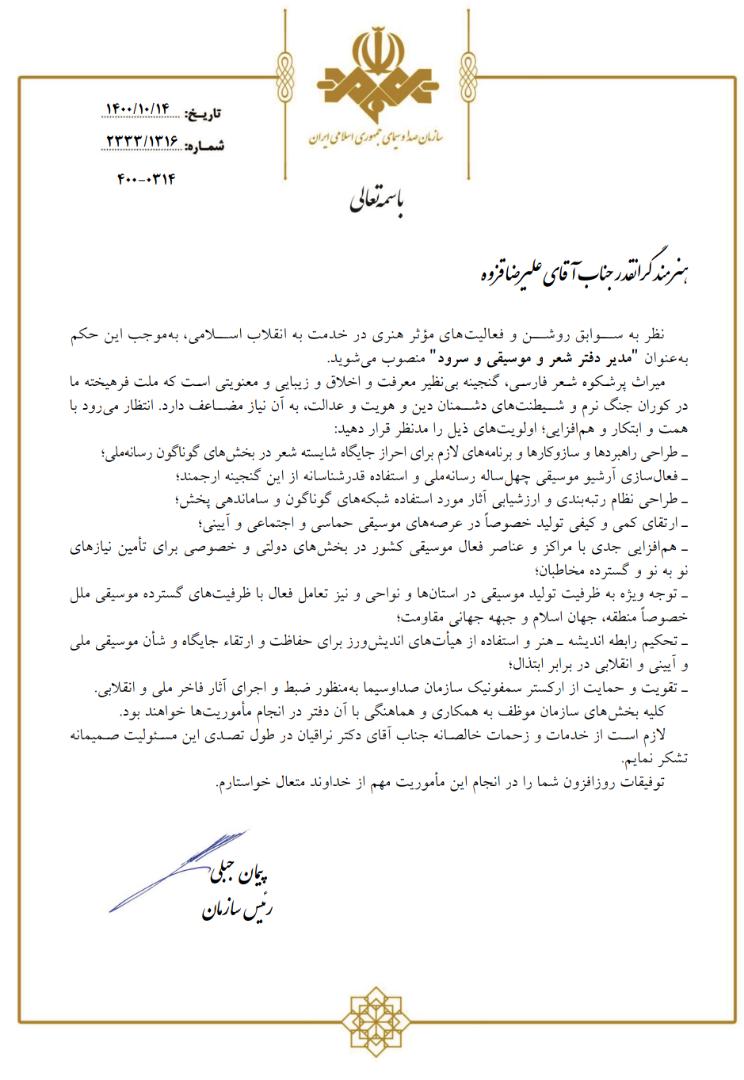 سازمان صدا و سیمای جمهوری اسلامی ایران
تاریخ: ۱۴۰۰/۱۰/۱۴
شماره: ۲۳۳۳/۱۳۱۶
۴۰۰-۰۳۱۴
باسمه‌تعالی
هنرمند گرانقدر جناب آقای علیرضا قزوه
نظر به سوابق روشن و فعالیت‌های مؤثر هنری در خدمت به انقلاب اسلامی، به‌موجب این حکم
به‌عنوان "مدیر دفتر شعر و موسیقی و سرود" منصوب می‌شوید.
میراث پرشکوه شعر فارسی، گنجینه بی‌نظیر معرفت و اخلاق و زیبایی و معنویتی است که ملت فرهیخته ما
در کوران جنگ نرم و شیطنت‌های دشمنان دین و هویت و عدالت، به آن نیاز مضاعف دارد. انتظار می‌رود با
همت و ابتکار و هم‌افزایی؛ اولویت‌های ذیل را مدنظر قرار دهید:
ـ طراحی راهبردها و سازوکارها و برنامه‌های لازم برای احراز جایگاه شایسته شعر در بخش‌های گوناگون رسانه‌ملی؛
ـ فعال‌سازی آرشیو موسیقی چهل‌ساله رسانه‌ملی و استفاده قدرشناسانه از این گنجینه ارجمند؛
ـ طراحی نظام رتبه‌بندی و ارزشیابی آثار مورد استفاده شبکه‌های گوناگون و ساماندهی پخش؛
ـ ارتقای کمی و کیفی تولید خصوصاً در عرصه‌های موسیقی حماسی و اجتماعی و آیینی؛
ـ هم‌افزایی جدی با مراکز و عناصر فعال موسیقی کشور در بخش‌های دولتی و خصوصی برای تأمین نیازهای
نو به نو و گسترده مخاطبان؛
ـ توجه ویژه به ظرفیت تولید موسیقی در استان‌ها و نواحی و نیز تعامل فعال با ظرفیت‌های گسترده موسیقی ملل
خصوصاً منطقه، جهان اسلام و جبهه جهانی مقاومت؛
ـ تحکیم رابطه اندیشه ـ هنر و استفاده از هیأت‌های اندیش‌ورز برای حفاظت و ارتقاء جایگاه و شأن موسیقی ملی
و آیینی و انقلابی در برابر ابتذال؛
ـ تقویت و حمایت از ارکستر سمفونیک سازمان صداوسیما به‌منظور ضبط و اجرای آثار فاخر ملی و انقلابی.
کلیه بخش‌های سازمان موظف به همکاری و هماهنگی با آن دفتر در انجام مأموریت‌ها خواهند بود.
لازم است از خدمات و زحمات خالصانه جناب آقای دکتر نراقیان در طول تصدی این مسئولیت صمیمانه
تشکر نمایم.
توفیقات روزافزون شما را در انجام این مأموریت مهم از خداوند متعال خواستارم.
پیمان جبلی
رئیس سازمان